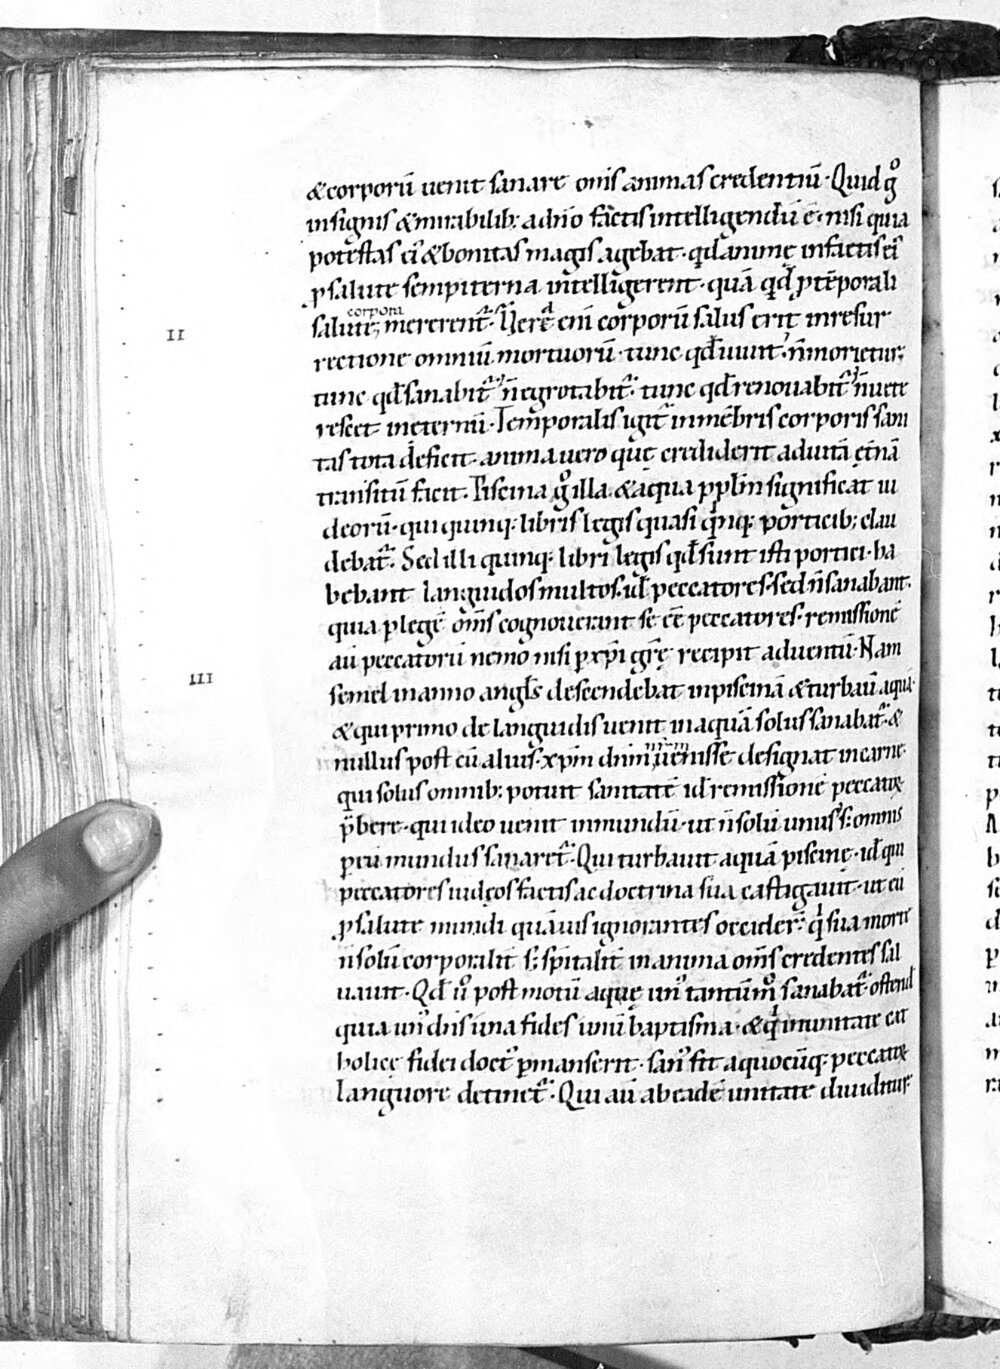 &corporū uenit sanare om̄s animas credentiū· Quid gͦ
insignis & mirabilib; adn̄o factis intelligendū ē· nisi quia
potestas ei' & bonitas magis agebat· qđ animę infactis ei'
ꝓ salute sempiterna intelligerent· quā qđ ꝓ tēporali
corpora
II
salute; mererent᷑· Nerē eni corporū salus erit inresur
rectione omniū mortuorū· tunc qđ uiuit· n̄ morietur;
tunc qđ sanabit᷑· n̄ egrotabit᷑· tunc qđ renouabit᷑· n̄ uete
rescet ineternū· Temporalis igit᷑ inmēbris corporis sani
tas tota deficit· anima uero quę crediderit aduitā ęt̄nā
transitū facit· Piscina gͦ illa & aqua ppl̄m significat iu
deorū· qui quinq; libris legis quasi qinq; porticib; clau
debat᷑· Sed illi quinq; libri legis qđ sunt isti portici· ha
bebant languidos multos· ul̄ peccatores· sed n̄ sanabant·
quia ꝑ legē om̄s cognouerant se eē peccatores· remissionē
III
aū peccatorū nemo nisi ꝑ xp̄i grę recipit aduentū· Nam
semel inanno angl̄s descendebat inpiscinā & turbabat aquā
& qui primo de languidis uenit inaquā solus sanabat᷑· &
nullus post eū alius· xp̄m dn̄m n̄rm uenisse designat incarne·
qui solus omnib; potuit sanitatē id' remissionē peccatoꝝ
p̄bere· qui ideo uenit inmundū· ut n̄ solū unus s; omnis
ꝑ eū mundus sanaret᷑· Qui turbauit aquā piscinę· id' qui
peccatores iudęos factis ac doctrina sua castigauit· ut eū
ꝓ salute mundi quāuis ignorantes occider᷑· q sua morte
n̄ solū corporalit s; spitalit inanima om̄s credentes sal
uauit· Qđ ū post motū aquę un' tantūm sanabat᷑· ostend
quia un' dn̄s una fides unū baptisma· & q inunitate cat
holice fidei doct' ꝑmanserit· san' fit aquocūq; peccatoꝝ
languore detinet᷑· Qui aū ab eadē unitate diuiditur·